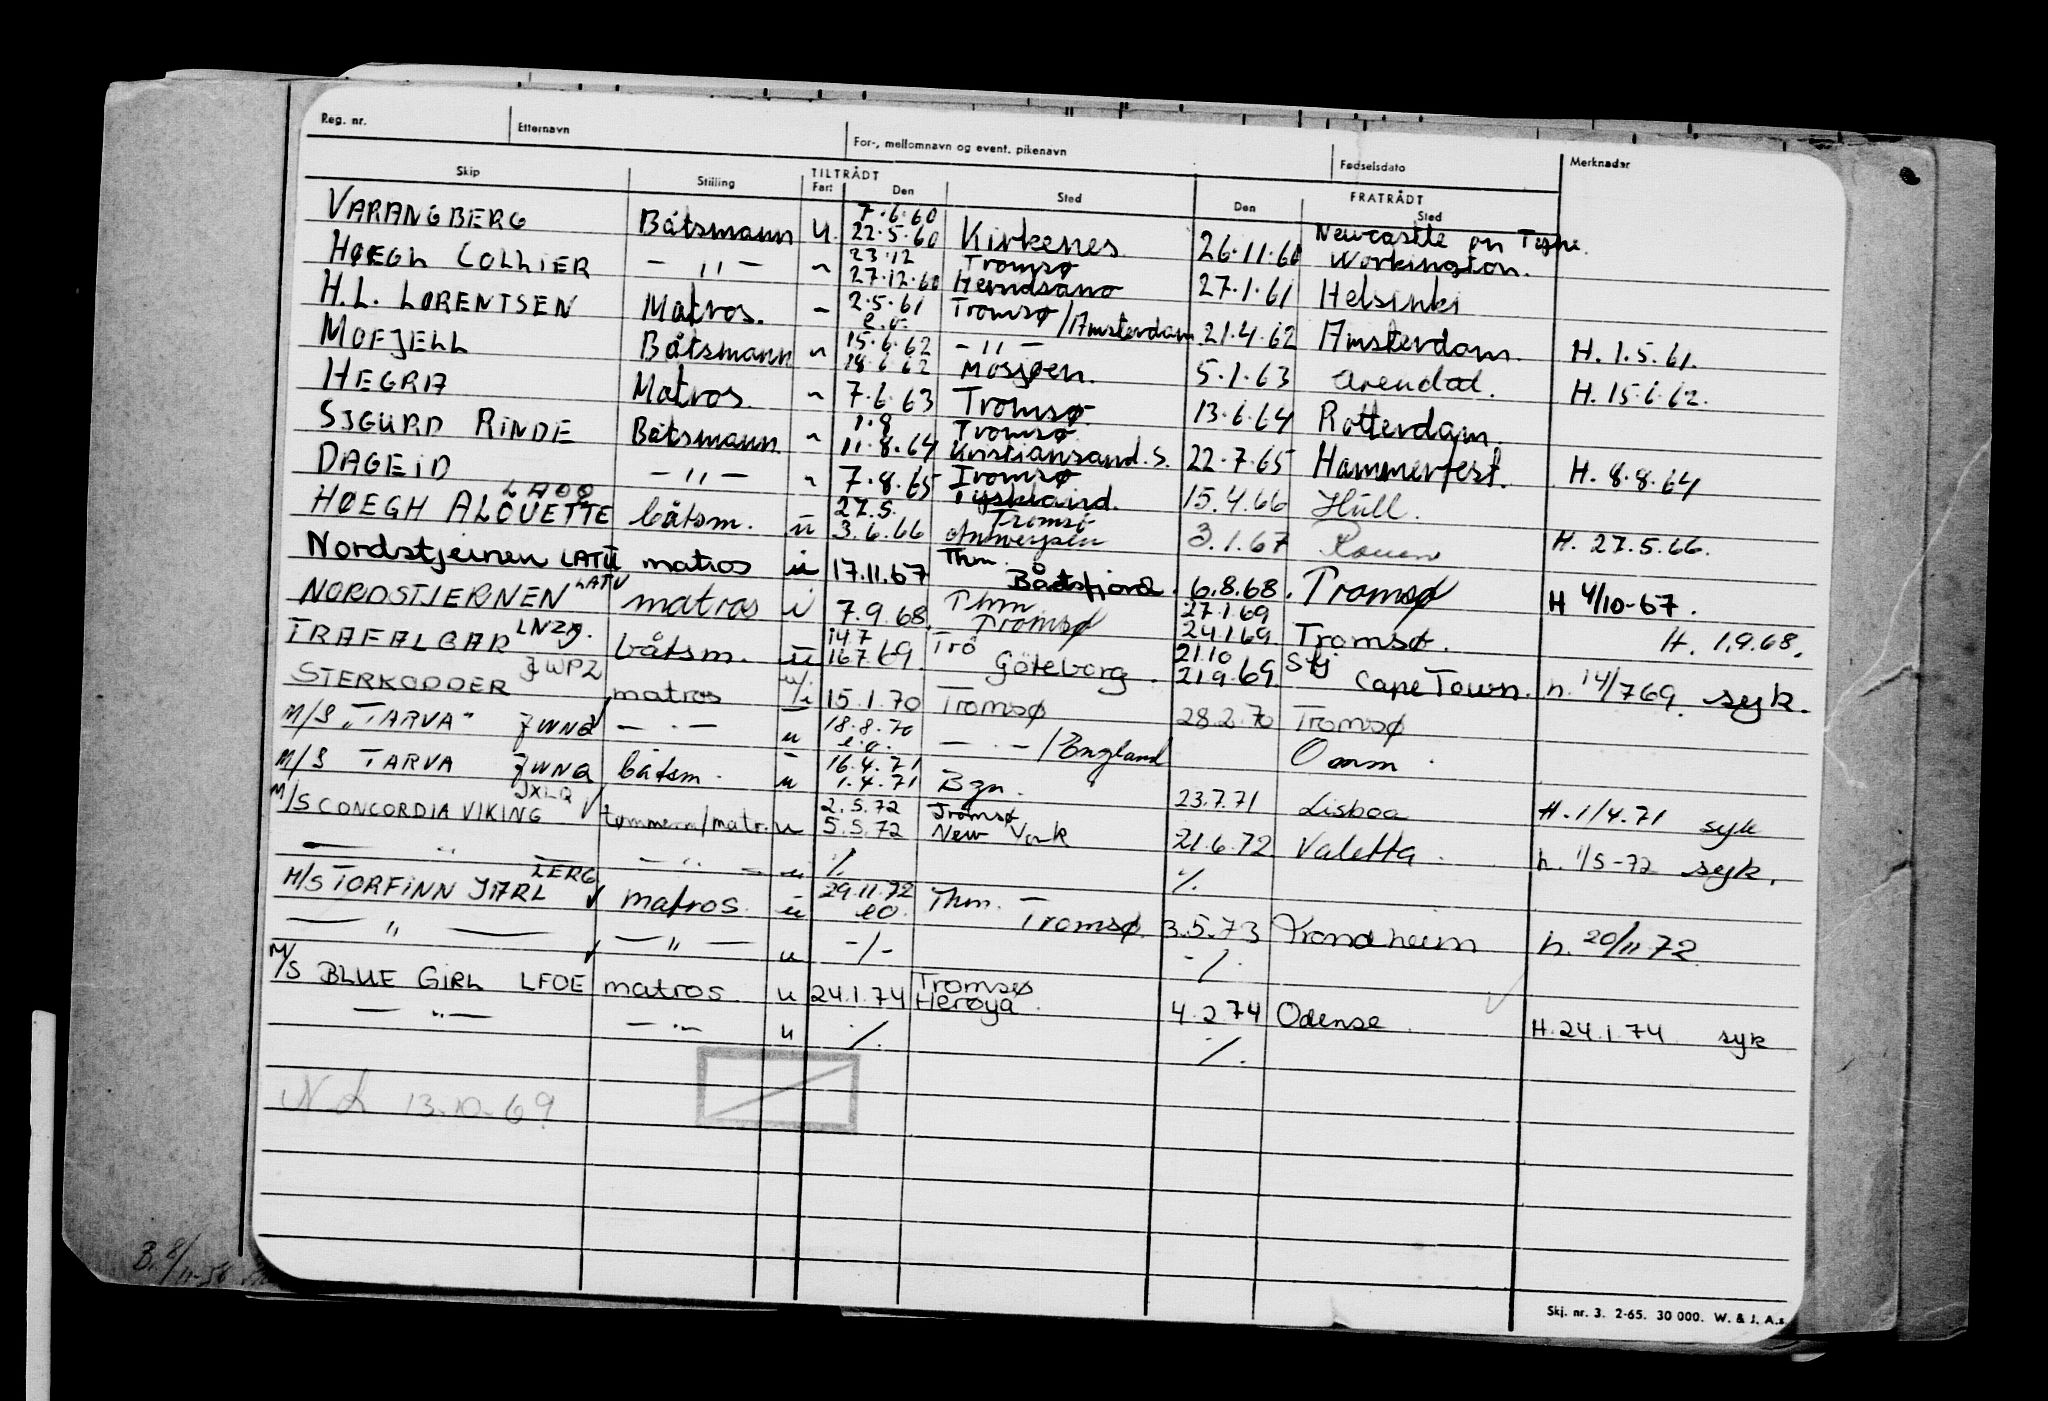 Reg. nr. Etternavn For-, mellomnavn og event. pikenavn Fødselsdato Merknader
Skip Stilling TILTRÅDT FRATRÅDT
Fart Den Sted Den Sted
VARANGBERG Båtsmann u. 7.6.60 22.5.60 Kirkenes 26.11.60 Newcastle on Tyne. Workington.
HØEGH COLLIER — " — 23.12 27.12.60 Tromsø 27.1.61 Helsinki
H.L. LORENTSEN Matros. 2.5.61 e.o. Tromsø/Amsterdam 21.4.62 Amsterdam. H. 1.5.61.
MOFJELL Båtsmann 15.6.62 18.6.62 — " — Mosjøen. 5.1.63 Arendal. H. 15.6.62.
HEGRA Matros. 7.6.63 Tromsø 13.6.64 Rotterdam.
SIGURD RINDE Båtsmann. 1.8 11.8.64 Tromsø Kristiansand.S. 22.7.65 Hammerfest. H. 8.8.64
DAGEID — " — 7.8.65 Tromsø Tyskland. 15.4.66 Hull.
HØEGH ALOUETTE LAOO båtsm. u 27.5. 3.6.66 Tromsø Antwerpen 3.1.67 Rouen H. 27.5.66.
Nordstjernen LATU matros u 17.11.67 Thm. Båtsfjord. 6.8.68. Tromsø H 4/10-67.
NORDSTJERNEN LATU matros i 7.9.68. Thm Tromsø 27.1.69 24.1.69 Tromsø. H. 1.9.68.
TRAFALGAR LNZM. båtsm. u 14.7 16.7.69. Trø Göteborg. 21.10 21.9.69. Stj Cape Town. h. 14/7 69. syk.
STERKODDER JWPZ matros u/i 15.1.70 Tromsø 28.2.70 Tromsø
M/S "TARVA" JWNQ — . — u 18.8.70 e.o. — . — /England Omm.
M/S TARVA JWNQ båtsm. u 16.4.71 1.4.71 Bgn. 23.7.71 Lisboa H. 1/4.71 syk
M/S CONCORDIA VIKING JXLQ tømmerm/matr. u 2.5.72 5.5.72 Tromsø New York 21.6.72 Valetta. h. 1/5-72 syk.
— " — " — u ./. ./.
M/S TORFINN JARL LERG matros. u 29.11.72 eo. Thm. Tromsø. 3.5.73 Trondheim h. 20/11 72
— " — — " — u -/- -/.
M/S BLUE GIRL LFOE matros. u 24.1.74 Tromsø Herøya. 4.2.74 Odense. H. 24.1.74 syk
— " — — " — u ./. ./.
13.10.69
Skj. nr. 3. 2-65. 30 000. W. & J. A.s